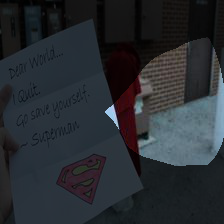 Dear World...
I Quit.
Go save yourself.
~ Superman
S